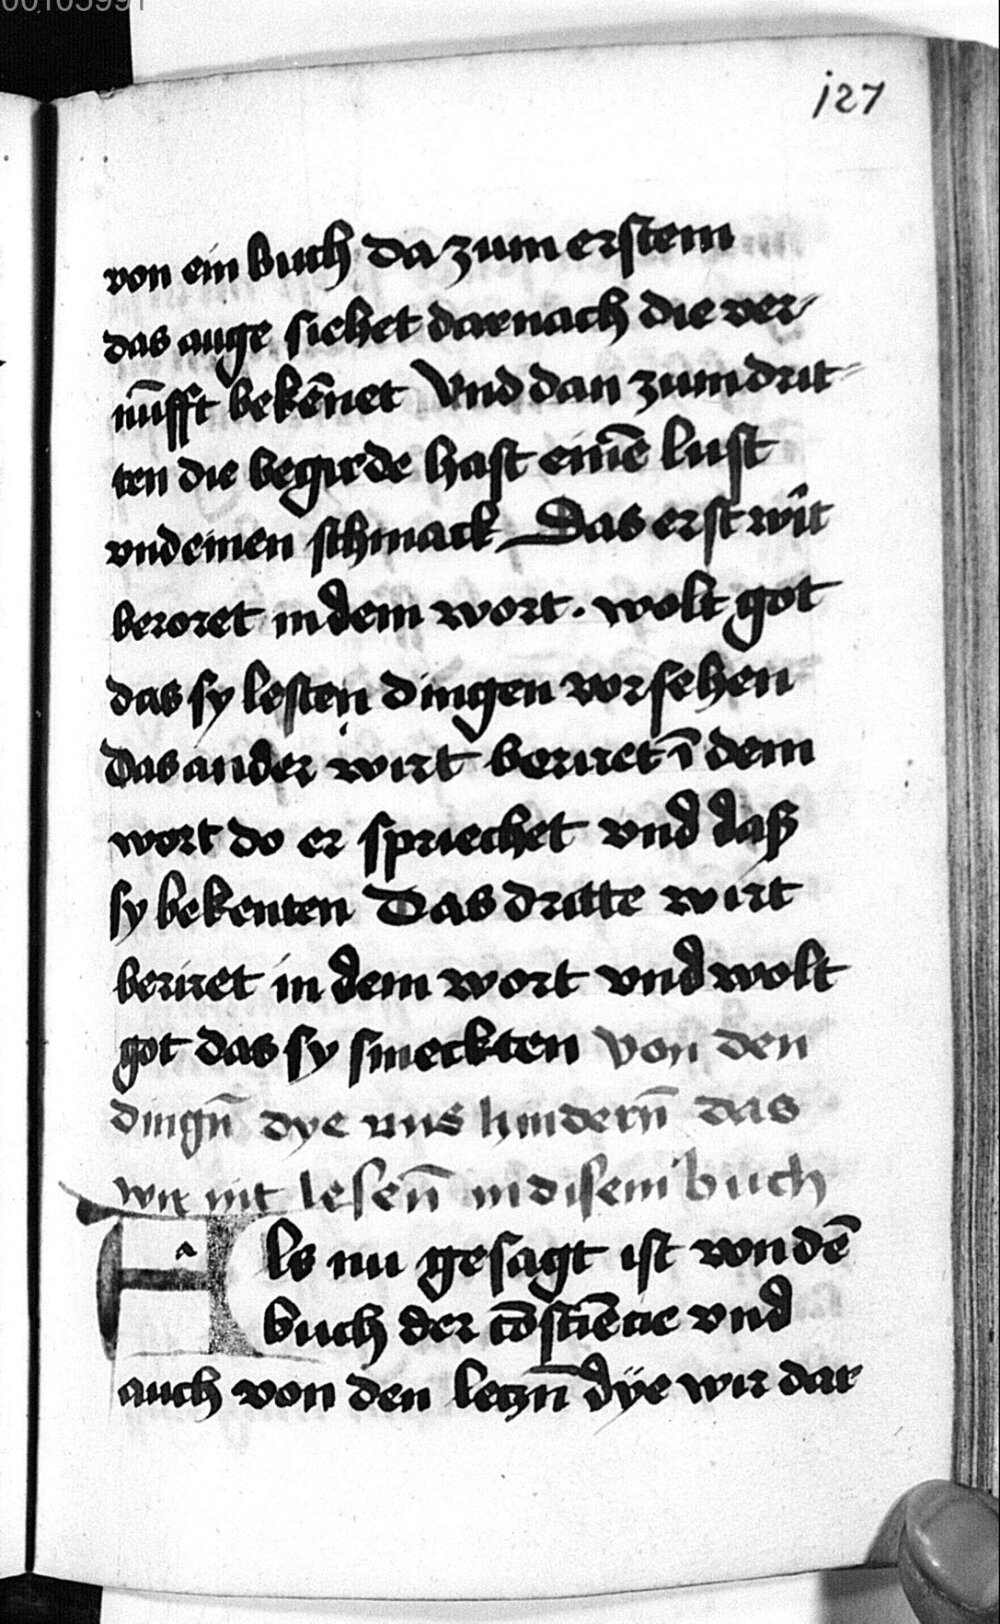 00103991
127
von ein buch da zum erstem
das auge siehet darnach die ver-
nūfft bekēnet Vnd dan zum drit-
ten die begirde hast einē lust
vnd einen schmack Das erst wirt
beroret in dem wort · wolt got
das sy lesten dingen vorsehen
Das ander wirt beruret ī dem
wort do er spriechet vnd daß
sy bekenten Das dritte wirt
beruret in dem wort vnd wolt
got das sy smeckten Von den
dingn̄ dye vns hindern̄ das
wir nit lesen̄ in disem buch
Als nu gesagt ist von dē
buch der cōsciēcie vnd
auch von den leczn̄ dÿe wir dar